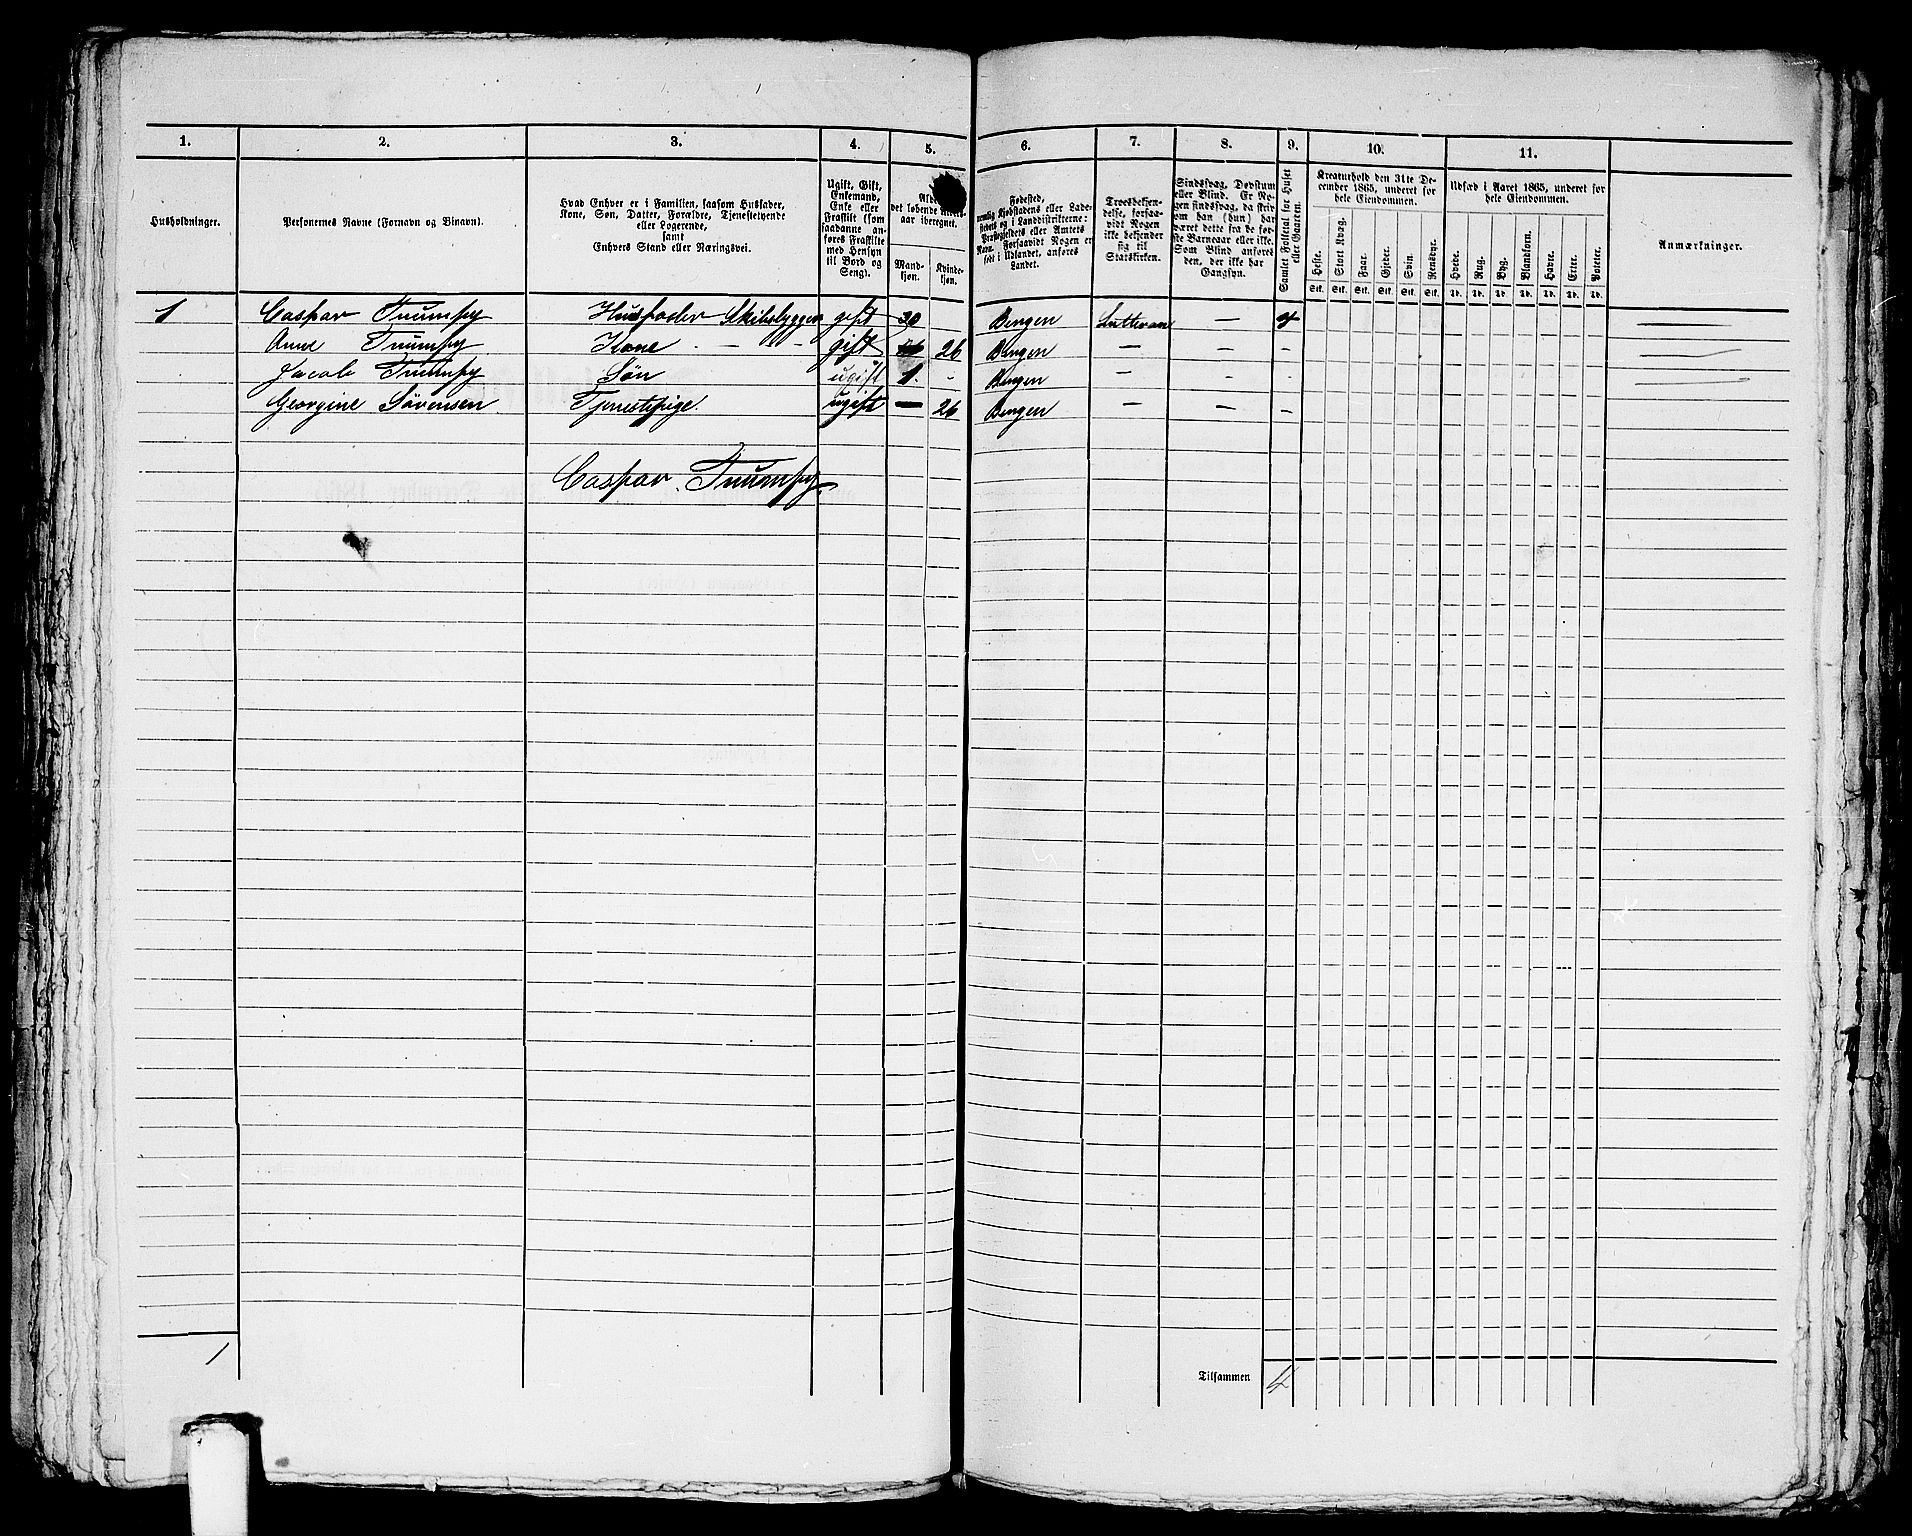 1. 2. 3. 4. 5. 6. 7. 8. 9. 10. 11.
Husholdninger.
Personernes Navne (Fornavn og Binavn).
Hvad Enhver er i Familien, saasom Husfader,
Kone, Søn, Datter, Forældre, Tjenestetyende
eller Logerende,
samt
Enhvers Stand eller Næringsvei.
Ugift, Gift,
Enkemand,
Enke eller
Fraskilt (som
saadanne an-
føres Fraskilte
med Hensyn
til Bord og
Seng).
det løbende
aar iberegnet.
Mand-
kjøn.
Kvinde-
kjøn.
Fødested,
nemlig Kjøbstadens eller Lade-
stedets og i Landdistrikterne:
Præstegjeldets eller Annexets
Navn. Forsaavidt Nogen er
født i Udlandet, anføres
Landet.
Troesbekjen-
delse, forsaa-
vidt Nogen
ikke bekjender
sig til
Statskirken.
Sindssvag, Døvstum
eller Blind. Er No-
gen sindssvag, da skriv
om han (hun) har
været dette fra de før-
ste Barneaar eller ikke.
Som Blind anføres
den, der ikke har
Gangsyn.
Samlet Folketal for Huset
eller Gaarden.
Kreaturhold den 31te De-
cember 1865, underet for
hele Eiendommen.
Heste. Stort Kvæg. Faar. Gjeder. Svin. Rensdyr.
Stk. Stk. Stk. Stk. Stk. Stk.
Udsæd i Aaret 1865, underet for
hele Eiendommen.
Hvede. Rug. Byg. Blandkorn. Havre. Erter. Poteter.
Td. Td. Td. Td. Td. Td. Td.
Anmærkninger.
1 Caspar Trumpy Husfader Skibsbygger gift 30 Bergen Lutheran — 4
Anne Trumpy Kone - — - - gift 26 Bergen — — -
Jacob Trumpy Søn ugift 1. - Bergen — - -
Georgine Sørensen Tjenestepige. ugift — 26 Bergen — — -
Caspar Trumpy.
1
Tilsammen 4